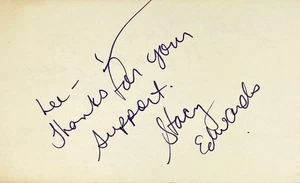 Lee-
Thanks for your
support.
Stacy
Edwards